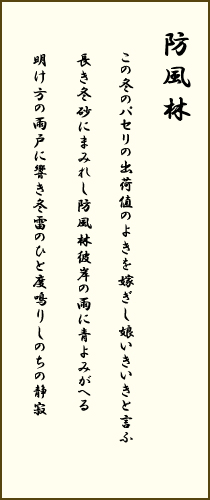 防風林
この冬のパセリの出荷値のよきを嫁ぎし娘いきいきと言ふ
長き冬砂にまみれし防風林彼岸の雨に青よみがへる
明け方の雨戸に響き冬雷のひと度鳴りしのちの静寂